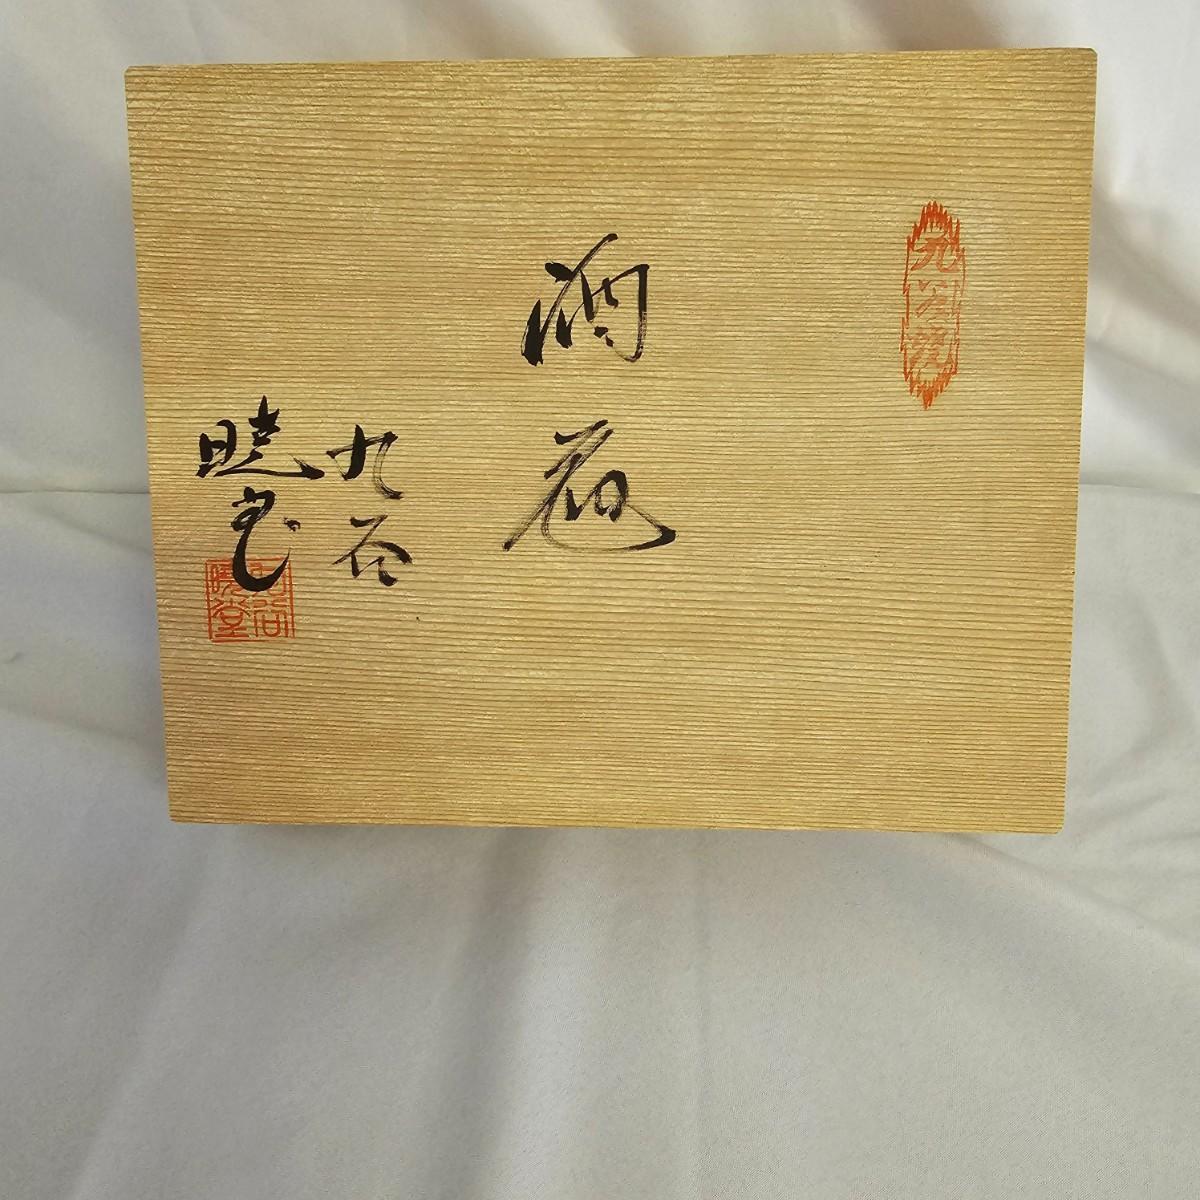 九谷焼
酒器
九谷
暁堂
九谷
暁堂